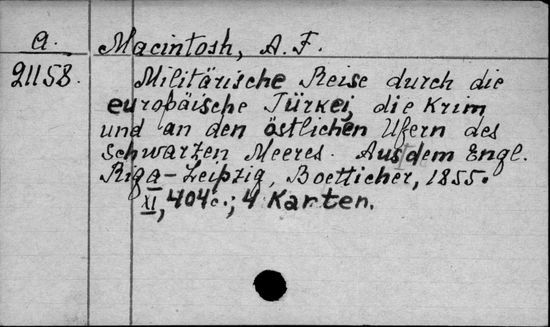 a.
Macintosh, A. F.
21158.
Militärische Reise durch die
europäische Türkei, die Krim
und an den östlichen Ufern des
Schwarzen Meeres. Aus dem Engl.
Riga-Leipzig, Boetticher, 1855.
XI, 404c.; 4 Karten.